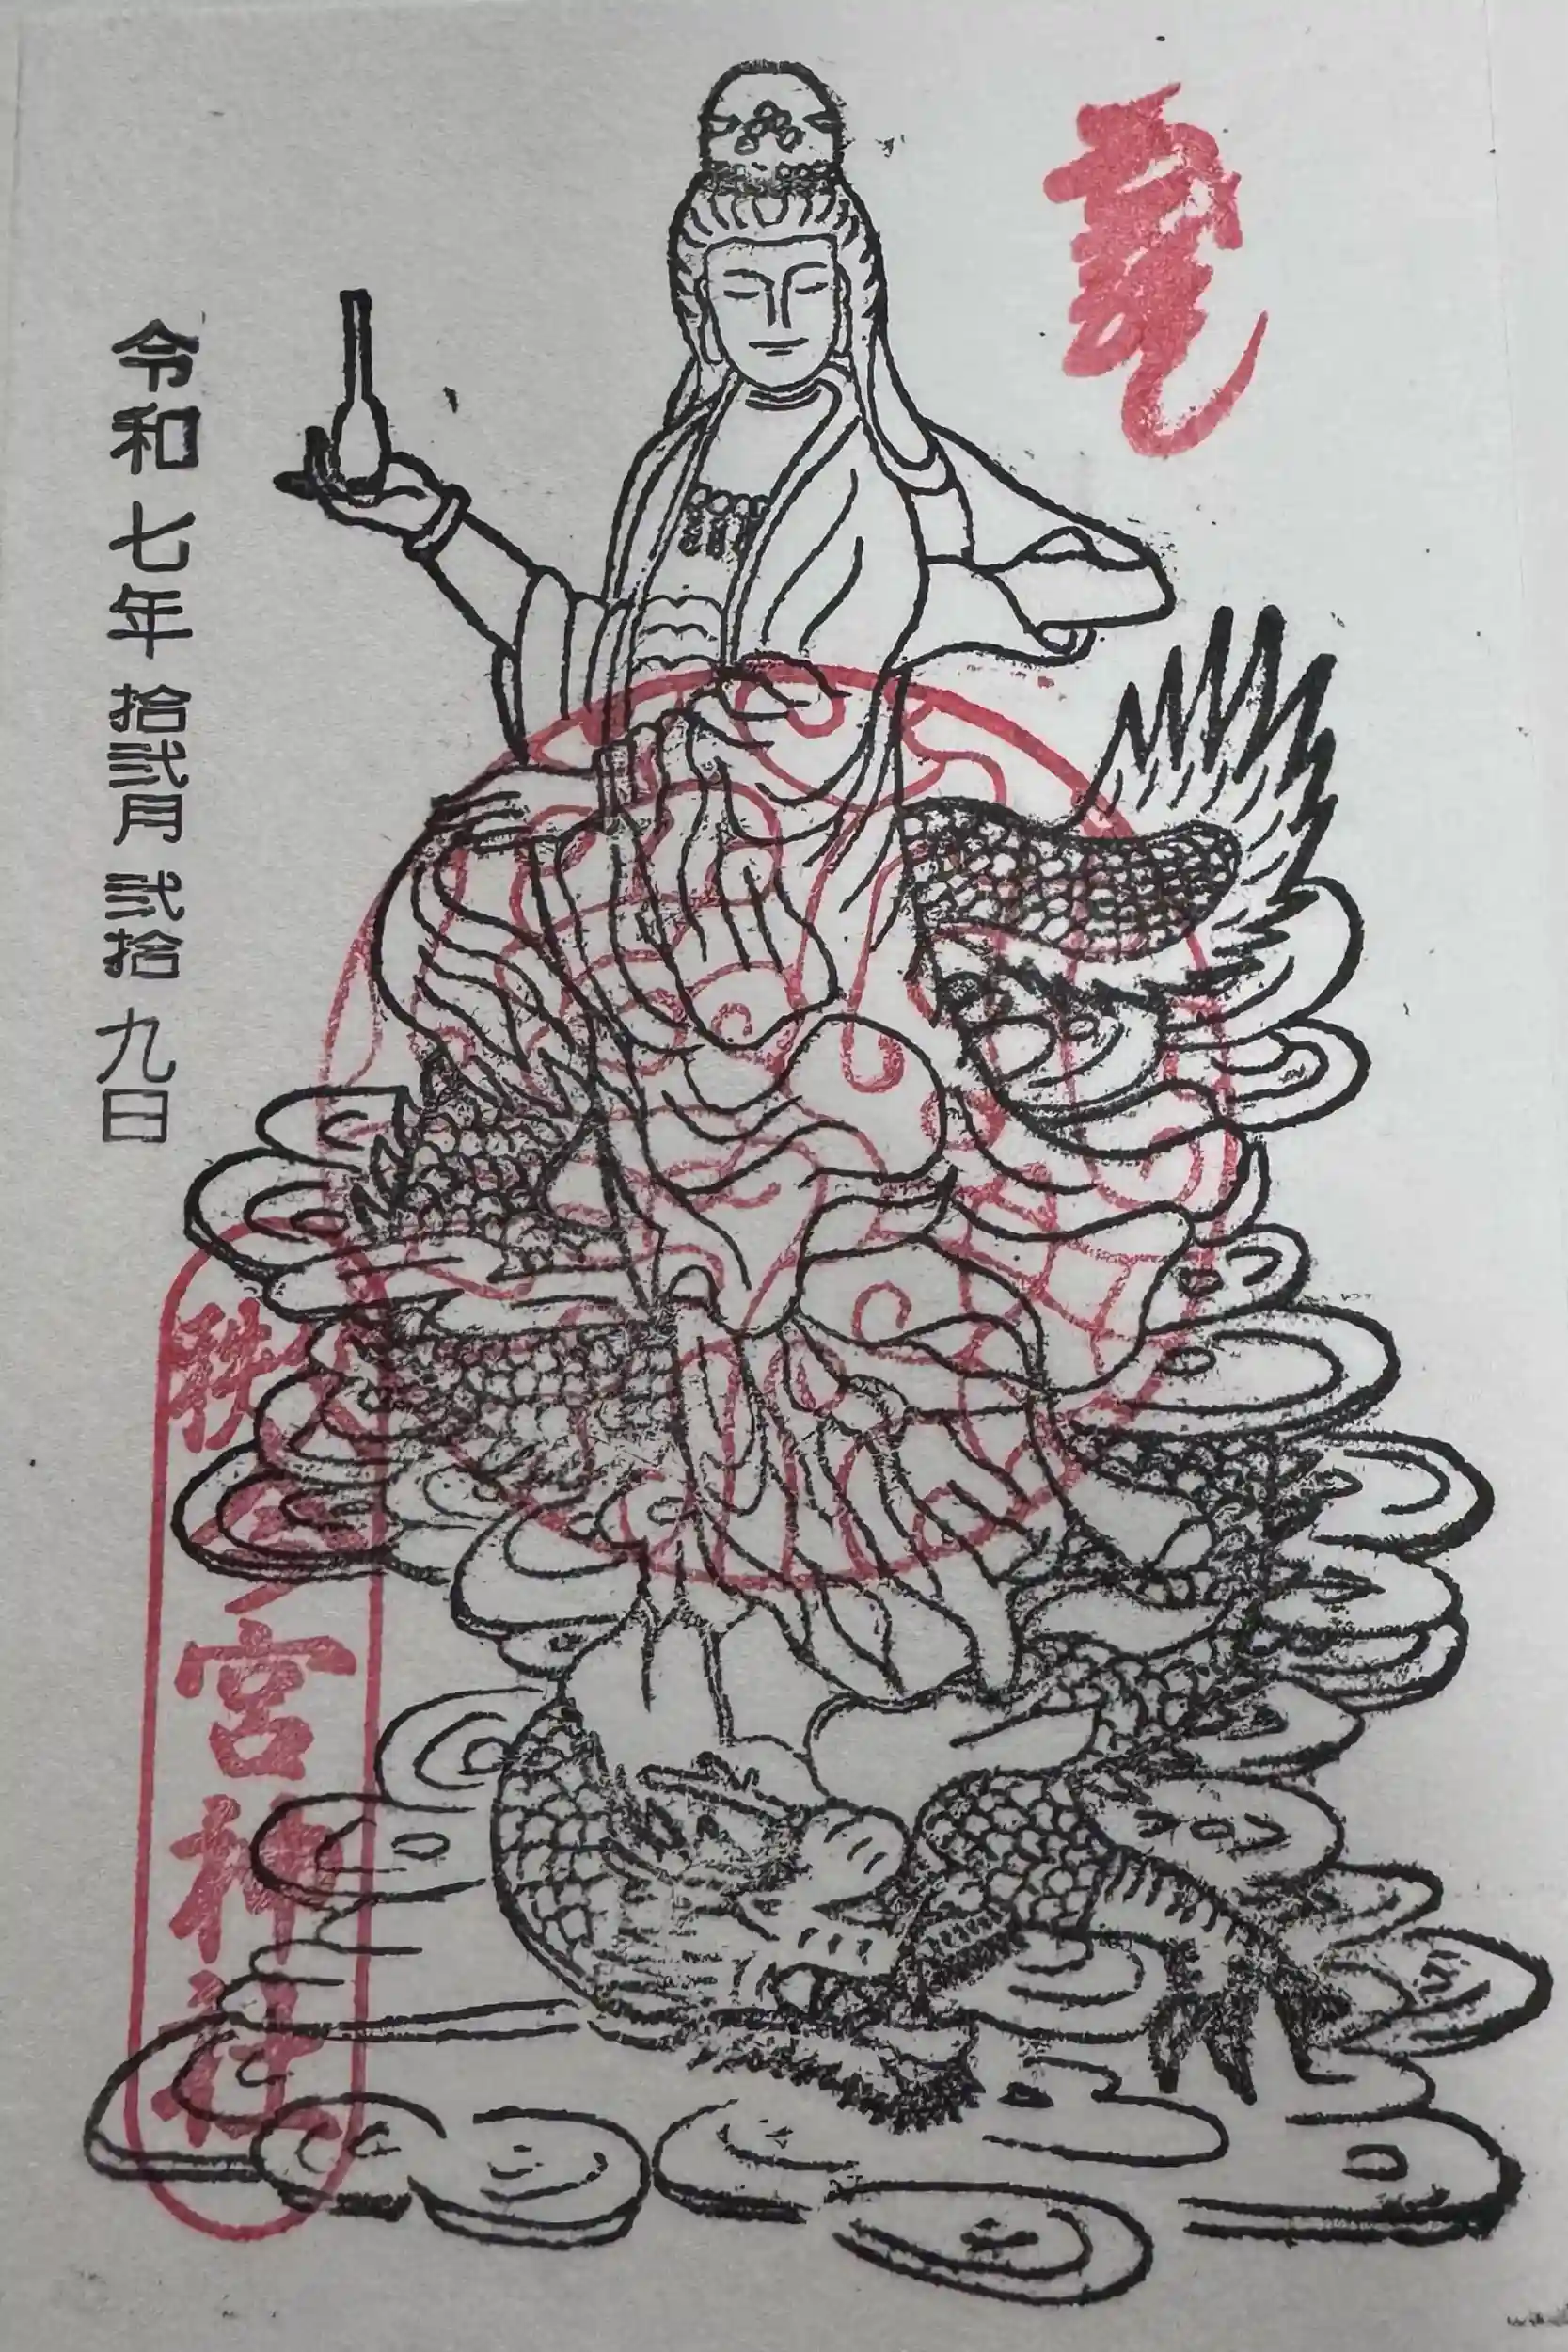 龍
秩父今宮神社
令和七年拾弐月弐拾九日